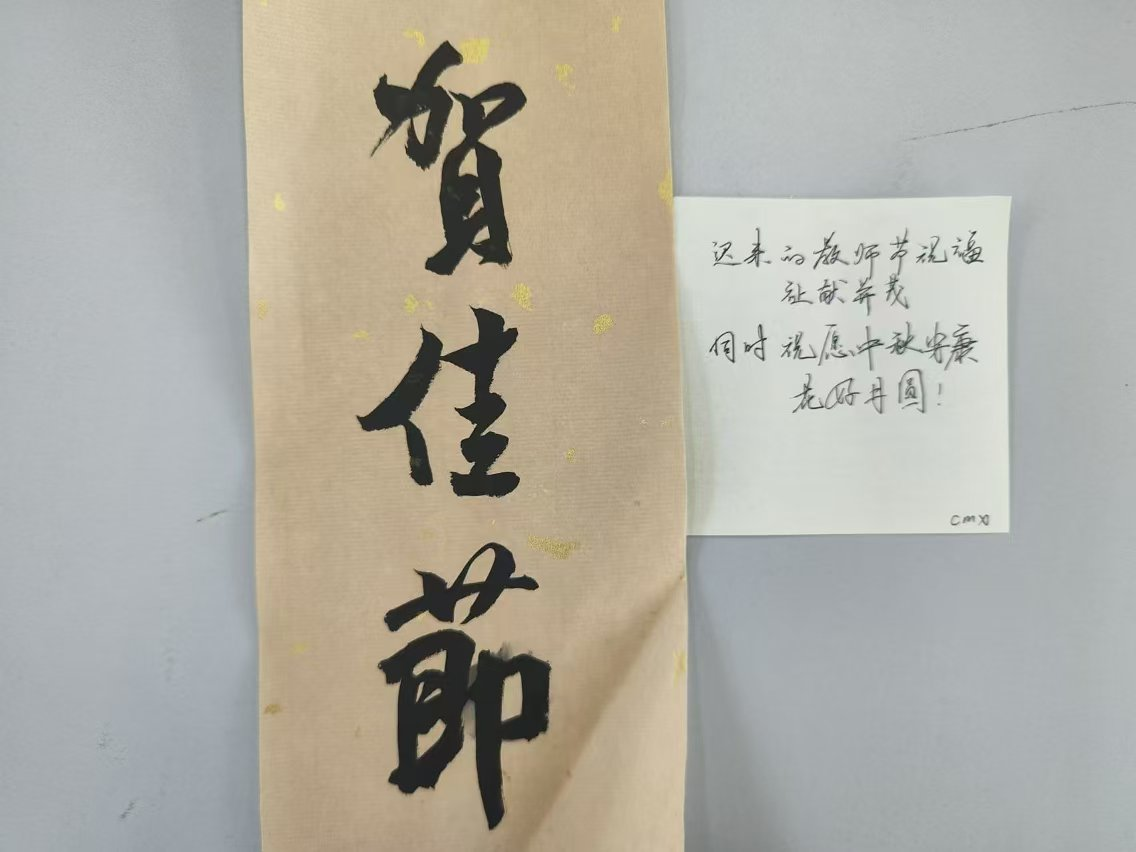 賀佳節
迟来的教师节祝福
祉猷并茂
同时祝愿中秋安康
花好月圆!
CMXJ